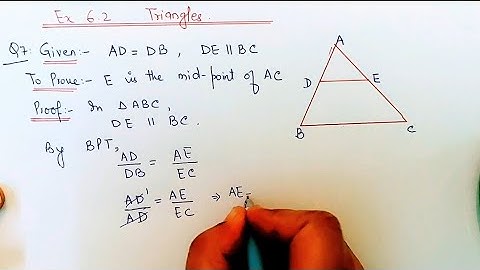 Ex 6.2 Triangles.
Q7: Given:- AD = DB, DE || BC
To Prove:- E is the mid-point of AC
Proof:- In △ABC,
DE || BC.
By BPT,
AD/DB = AE/EC
AD¹/AD = AE/EC ⇒ AE =
A
D E
B C